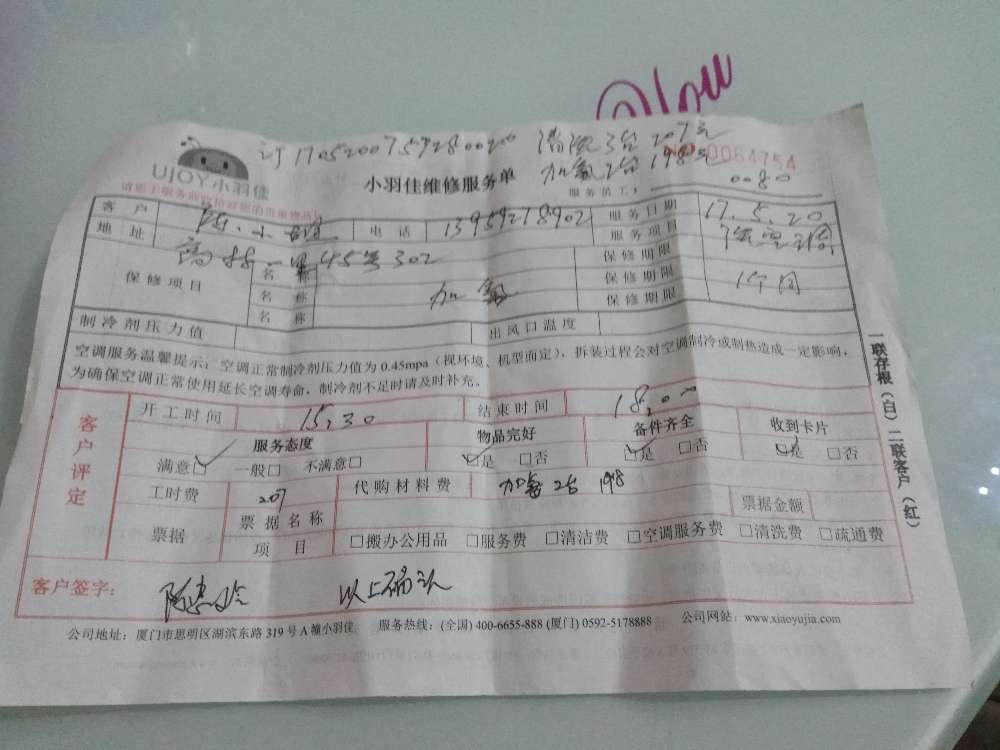 订1705200759280020 清洗3台 207元
加氟2台 198元
UJOY小羽佳 小羽佳维修服务单 NO 0064754
请您于服务前收拾好您的贵重物品! 服务员工: 0080
客户 陈小姐 电话 13959218902 服务日期 17.5.20
地址 高林一里45号302 服务项目
保修项目 名称 保修期限
名称 加氟 保修期限 1个月
名称 保修期限
制冷剂压力值 出风口温度
空调服务温馨提示:空调正常制冷剂压力值为0.45mpa(视环境、机型而定),拆装过程会对空调制冷或制热造成一定影响,
为确保空调正常使用延长空调寿命,制冷剂不足时请及时补充。
客户评定
开工时间 15,30 结束时间 18,00
服务态度 物品完好 备件齐全 收到卡片
满意□ 一般□ 不满意□ □是 □否 □是 □否 □是 □否
工时费 207 代购材料费 加氟2台 198
票据 票据名称 票据金额
项目 □搬办公用品 □服务费 □清洁费 □空调服务费 □清洗费 □疏通费
客户签字: 以上确认
公司地址:厦门市思明区湖滨东路319号A幢小羽佳 服务热线:(全国)400-6655-888 (厦门) 0592-5178888 公司网站:www.xiaoyujia.com
一联存根(白)二联客户(红)